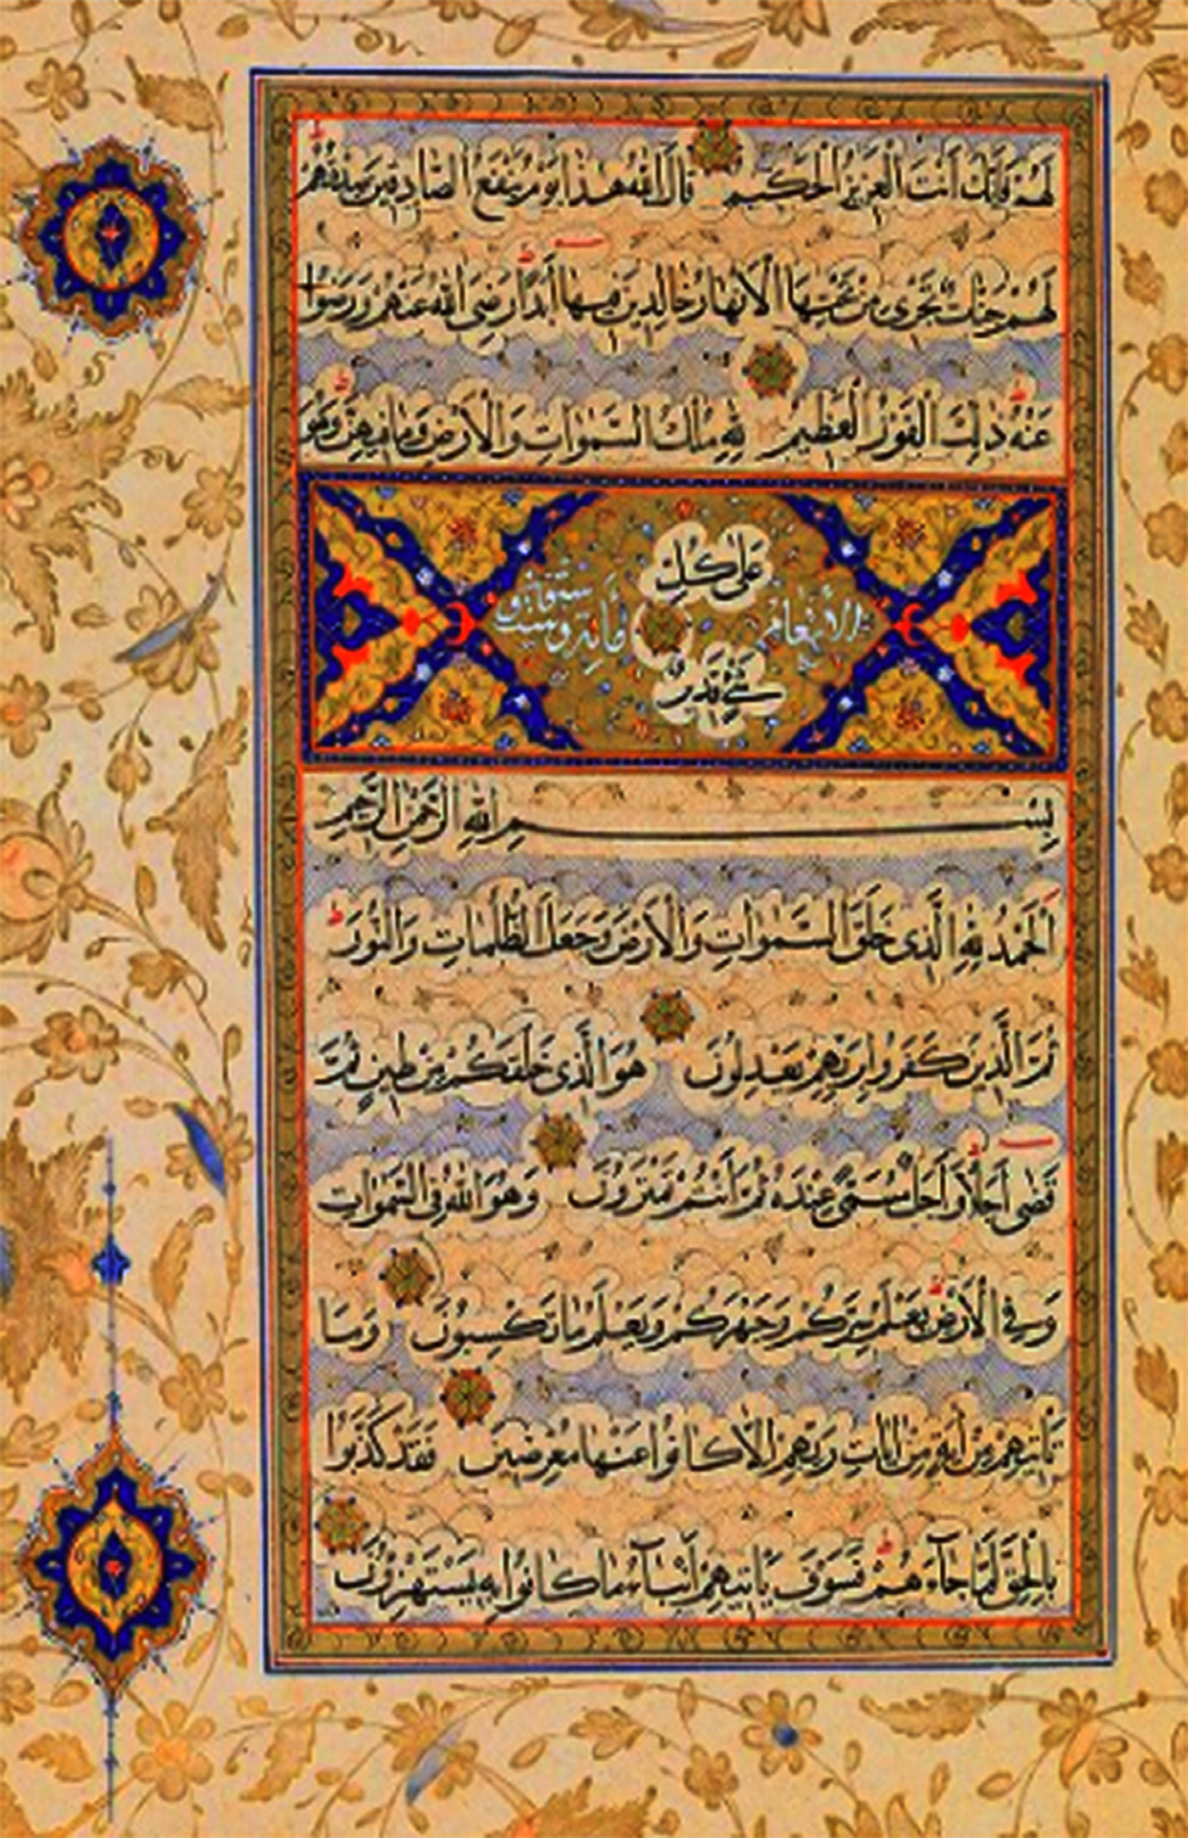 لَهُمْ فَإِنَّكَ أَنْتَ الْعَزِيزُ الْحَكِيمُ قَالَ اللَّهُ هٰذَا يَوْمُ يَنْفَعُ الصَّادِقِينَ صِدْقُهُمْ
لَهُمْ جَنَّاتٌ تَجْرِى مِنْ تَحْتِهَا الْأَنْهَارُ خَالِدِينَ فِيهَا أَبَدًا رَضِىَ اللَّهُ عَنْهُمْ وَرَضُوا
عَنْهُ ذٰلِكَ الْفَوْزُ الْعَظِيمُ لِلَّهِ مُلْكُ السَّمٰوَاتِ وَالْأَرْضِ وَمَا فِيهِنَّ وَهُوَ
عَلَى كُلِّ
الأنعام مائة وستون
شَىْءٍ قَدِيرٌ
بِسْمِ اللَّهِ الرَّحْمٰنِ الرَّحِيمِ
اَلْحَمْدُ لِلَّهِ الَّذِى خَلَقَ السَّمٰوَاتِ وَالْأَرْضَ وَجَعَلَ الظُّلُمَاتِ وَالنُّورَ
ثُمَّ الَّذِينَ كَفَرُوا بِرَبِّهِمْ يَعْدِلُونَ هُوَ الَّذِى خَلَقَكُمْ مِنْ طِينٍ ثُمَّ
قَضٰى أَجَلًا وَأَجَلٌ مُسَمًّى عِنْدَهُ ثُمَّ أَنْتُمْ تَمْتَرُونَ وَهُوَ اللَّهُ فِى السَّمٰوَاتِ
وَفِى الْأَرْضِ يَعْلَمُ سِرَّكُمْ وَجَهْرَكُمْ وَيَعْلَمُ مَا تَكْسِبُونَ وَمَا
تَأْتِيهِمْ مِنْ اٰيَةٍ مِنْ اٰيَاتِ رَبِّهِمْ إِلَّا كَانُوا عَنْهَا مُعْرِضِينَ فَقَدْ كَذَّبُوا
بِالْحَقِّ لَمَّا جَآءَهُمْ فَسَوْفَ يَأْتِيهِمْ أَنْبَآءُ مَا كَانُوا بِهِ يَسْتَهْزِؤُنَ